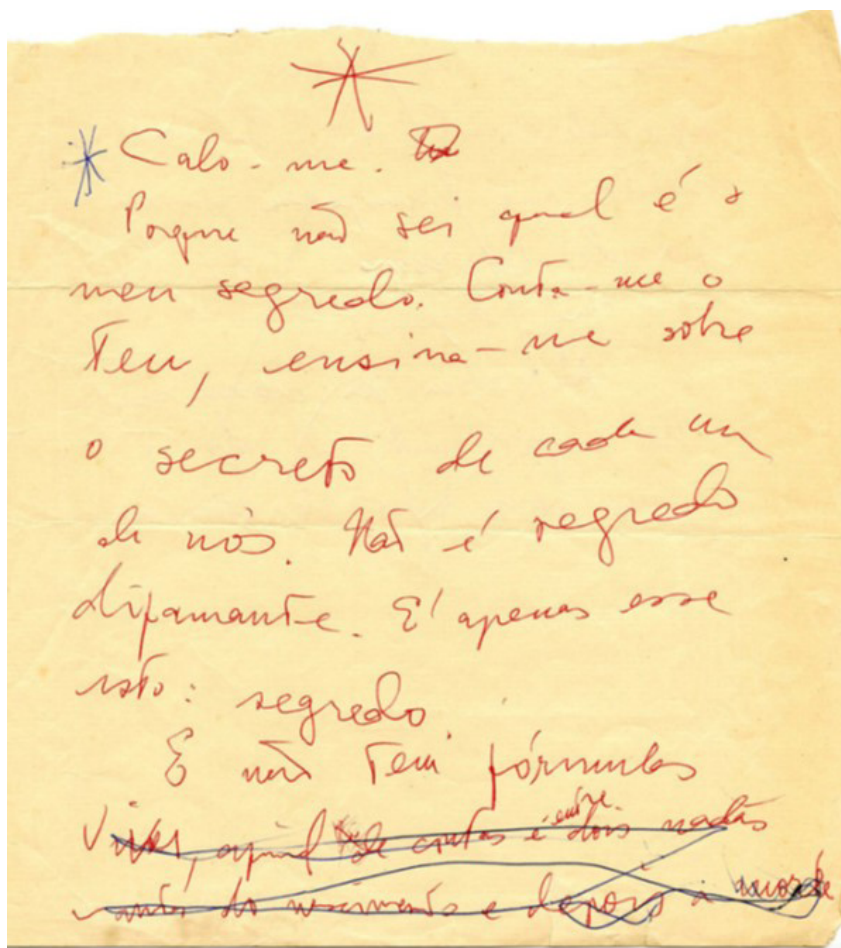 Calo-me.
Porque não sei qual é o
meu segredo. Conta-me o
teu, ensina-me sobre
o secreto de cada um
de nós. Não é segredo
difamante. É apenas esse
isto: segredo.
E não tem fórmulas
Viver, afinal de contas é entre dois nadas
antes do nascimento e depois a morte